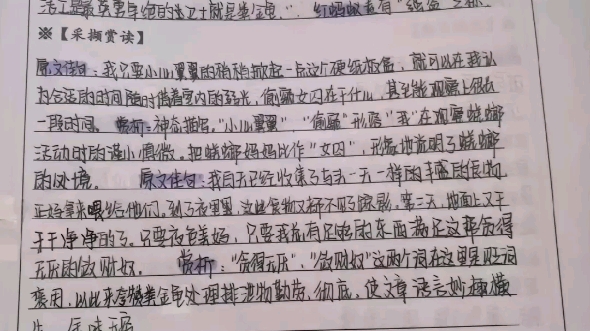 ※【采撷赏读】
原文佳句：我只要小心翼翼的稍稍掀起一点这个硬纸板盒，就可以在我认
为合适的时间随时借着室内的弱光，偷窥女囚在干什么，甚至能观察上很长
一段时间。赏析：神态描写。"小心翼翼"、"偷窥"形容"我"在观察蜣螂
活动时的谨小慎微。把蜣螂妈妈比作"女囚"，形象地说明了蜣螂
的处境。 原文佳句：我白天已经收集了与头一天一样的丰盛的食物，
正好拿来喂给他们。到了夜里，这些食物又都不见了踪影，第二天，地面上又干
干净净的了。只要夜色美好，只要我总有足够的东西满足这群贪得
无厌的敛财奴。 赏析："贪得无厌"、"敛财奴"这两个词在这里是贬词
褒用，以此来夸赞粪金龟处理排泄物勤劳、彻底，使文章语言妙趣横
生，